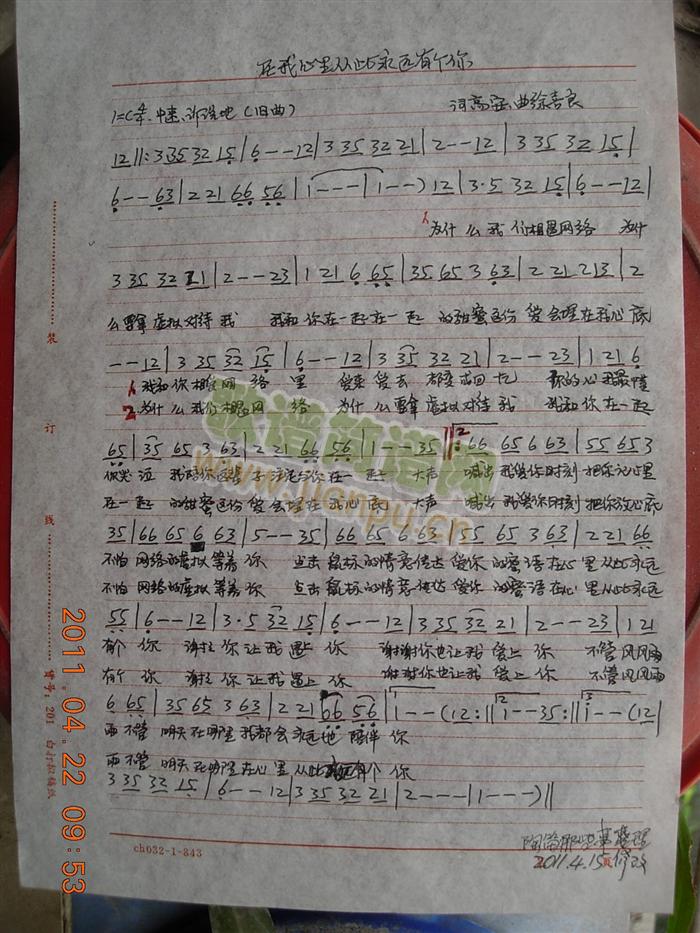 在我心里从此永远有个你
1=C 4/4 中速、诉说地(旧曲)
词高 曲徐善良
12||:3 35 32 15|6---12|3 35 32 21|2---12|3 35 32 15|
6--63|2 21 66 56|1---|1--)12|3·5 32 15|6---12|
为什 么我 们相遇网络 为什
3 35 32 21|2--23|1 21 6 65|35 65 3 63|2 21 213|2
么要拿虚拟对待我 我和你在一起在一起 的甜蜜这份 爱会埋在我心底
--12|3 35 32 15|6---12|3 35 32 21|2---23|1 21 6
1、我和你相 网络里 爱来爱去 都 我的心我最懂
2、为什么我们相遇网络 为什么要拿虚拟对待我 我和你在一起
65|35 65 3 63|2 21 66 56|1---35||:66 65 6 63|55 653
你 在一起 大声 喊出我爱你时刻把你记心里
在一起 的甜蜜这份爱会埋在我心底 大声 喊出我爱你时刻把你放心底
35|66 65 6 63|5---35|66 65 6 63|55 65 3 63|2 21 66
不怕网络的虚拟等着你 点击鼠标的情意传达爱你的蜜语在心里从此永远
不怕网络的虚拟等着你 点击鼠标的情意传达爱你的蜜语在心里从此永远
55|6---12|3·5 32 15|6---12|3 35 32 21|2---23|1 21
有个你 谢谢你让我遇上你 谢谢你也让我爱上你 不管风风雨
有个你 谢谢你让我遇上你 谢谢你也让我爱上你 不管风风雨
6 65|35 65 3 63|2 21 66 56|1--(12:||1--35:||1--(12|
雨不管 明天在哪里我都会永远地陪伴你
雨不管 明天在哪里在心里从此永远有个你
3 35 32 15|6---12|3 35 32 21|2---|1---)||
2011.4.15 修改
ch032-1-843
装
订
线
货号:201
2011.04.22 09:53
歌谱简谱网
www.jianpu.cn